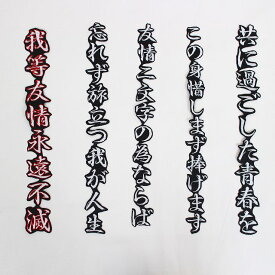 共に過ごした青春を
この身惜しまず捧げます
友情二文字の為ならば
忘れず旅立つ我が人生
我等友情永遠不滅